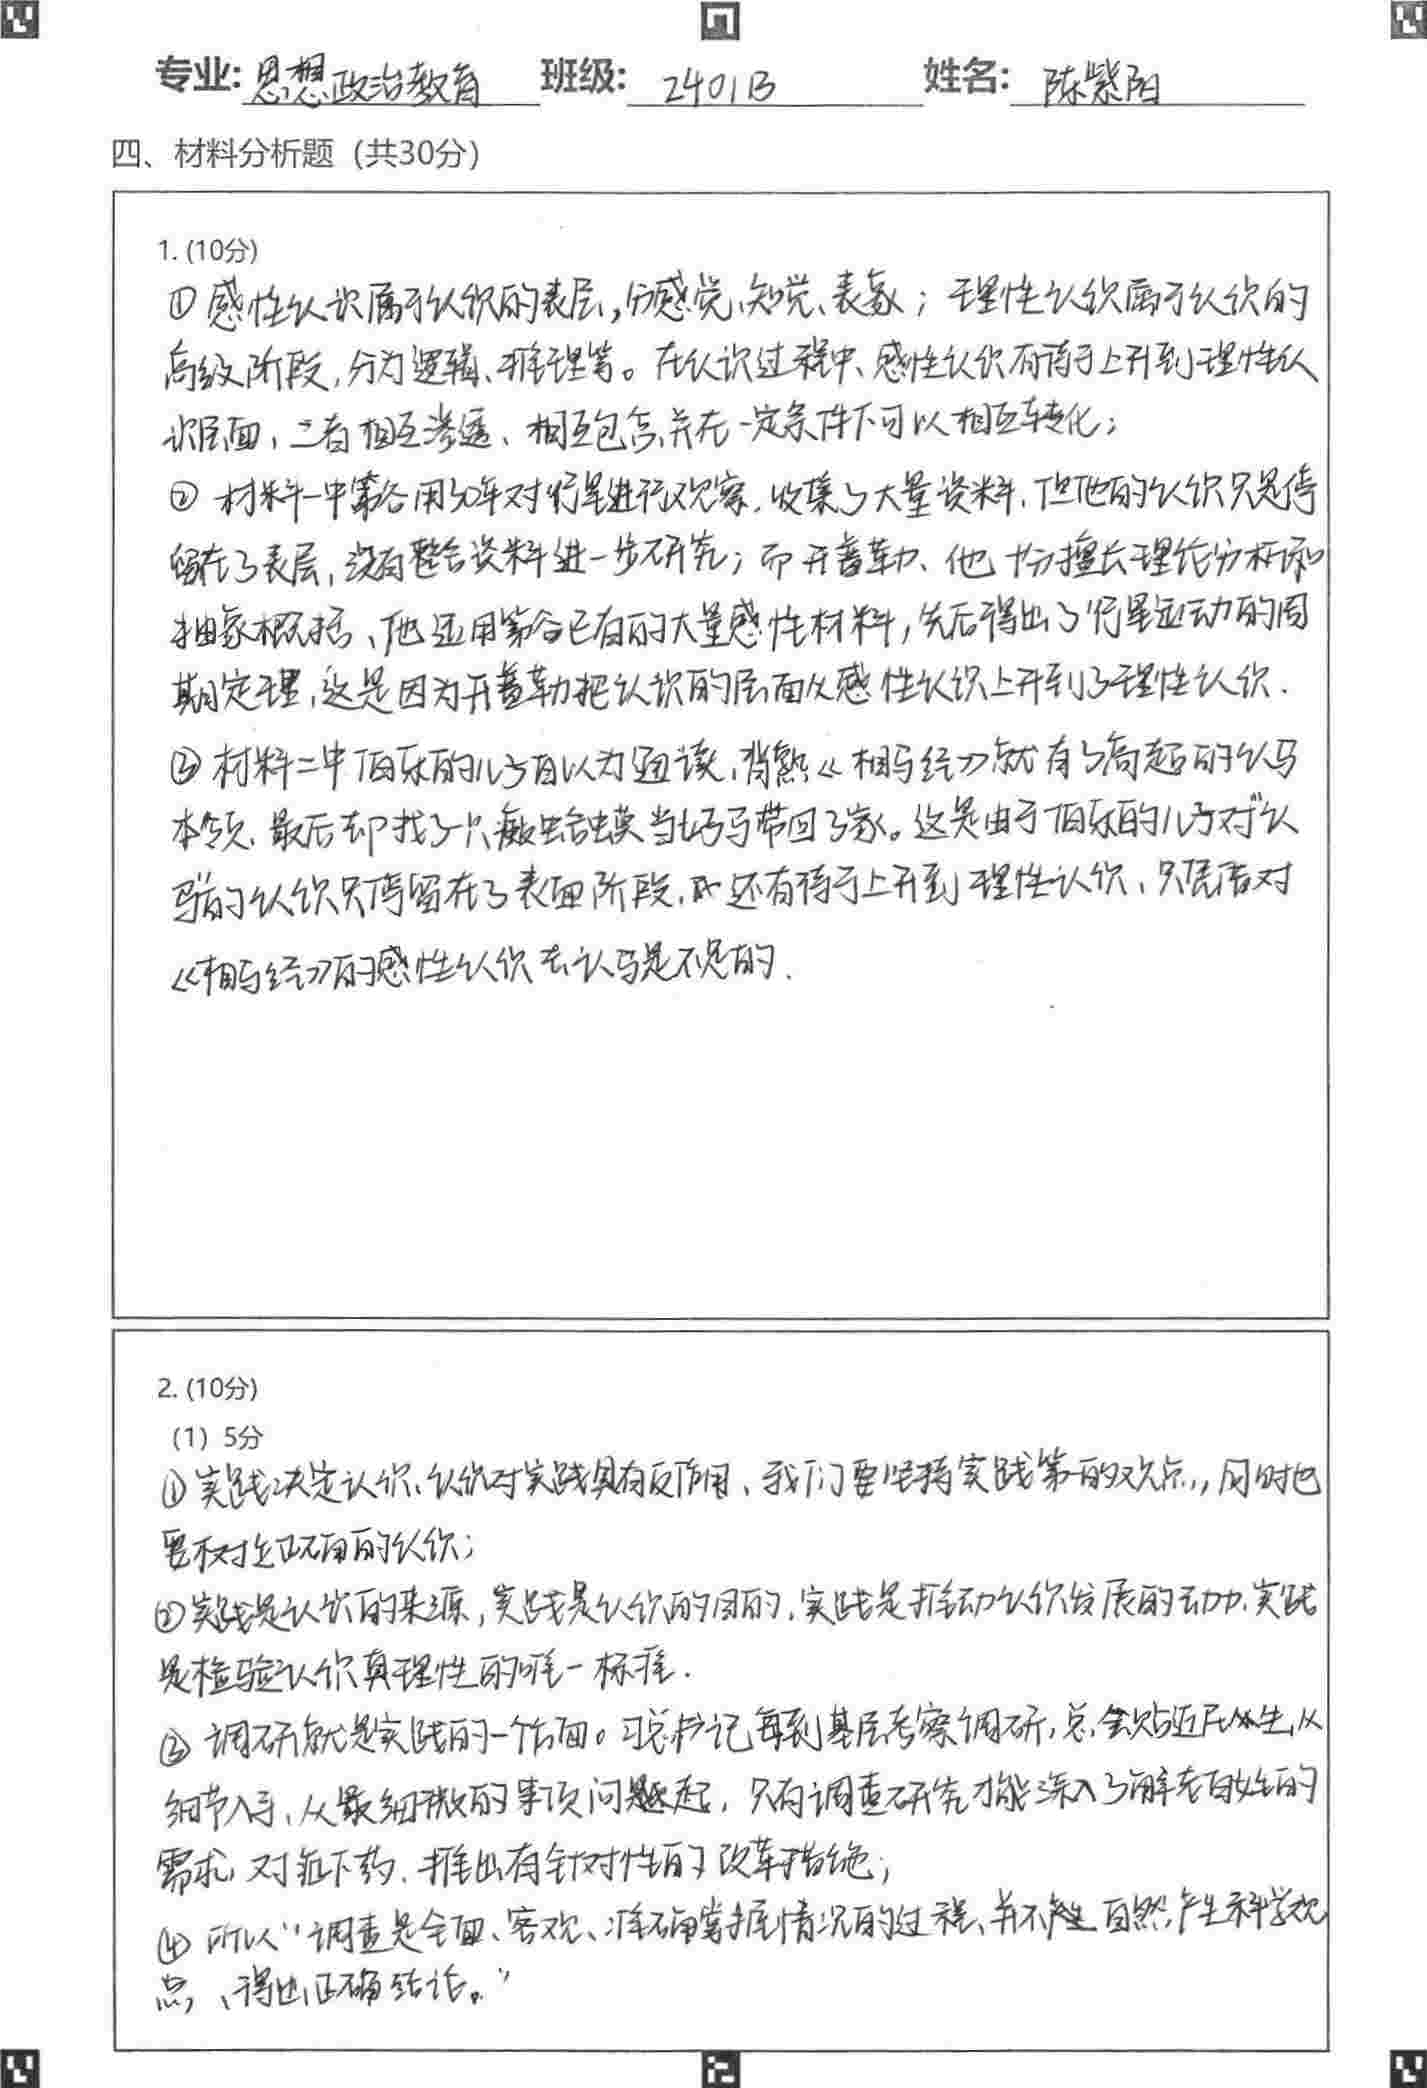 专业: 思想政治教育 班级: 2401B 姓名: 陈紫阳
四、材料分析题（共30分）
1. (10分)
①感性认识属于认识的表层，分感觉、知觉、表象；理性认识属于认识的
高级阶段，分为逻辑、推理等。在认识过程中、感性认识有待于上升到理性认
识层面，二者相互渗透、相互包含，并在一定条件下可以相互转化；
② 材料一中第谷用30年对行星进行观察，收集了大量资料，但他的认识只是停
留在了表层，没有整合资料进一步研究；而开普勒、他十分擅长理论分析和
抽象概括、他运用第谷已有的大量感性材料，先后得出了行星运动的周
期定理，这是因为开普勒把认识的层面从感性认识上升到了理性认识.
③材料二中伯乐的儿子自以为通读，背熟《相马经》就有了高超的认马
本领、最后却找了一只癞蛤蟆当好马带回了家。这是由于伯乐的儿子对"认
马"的认识只停留在了表面阶段，还有待于上升到理性认识、只凭借对
《相马经》的感性认识去认马是不足的.
2. (10分)
（1）5分
①实践决定认识、认识对实践具有反作用、我们要坚持实践第一的观点，同时也
要树立正确的认识；
②实践是认识的来源，实践是认识的目的，实践是推动认识发展的动力、实践
是检验认识真理性的唯一标准.
③ 调研就是实践的一个方面。习总书记每到基层考察调研，总会贴近民生，从
细节入手、从最细微的事项问题起，只有调查研究才能深入了解老百姓的
需求，对症下药、推出有针对性的改革措施；
④ 所以"调查是全面、客观、准确掌握情况的过程、并不产生自然产生科学观
点，、得出正确结论。"